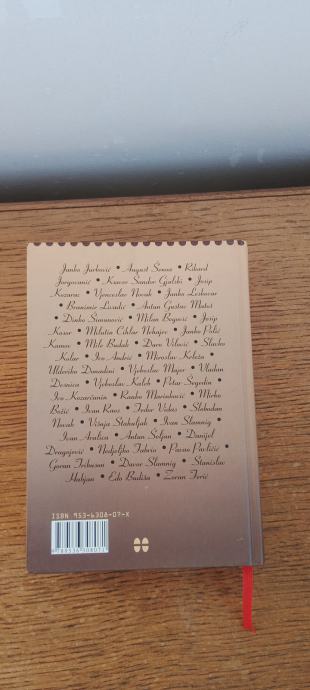 Janko Jurković • August Šenoa • Rikard
Jorgovanić • Ksaver Šandor Gjalski • Josip
Kozarac • Vjenceslav Novak • Janko Leskovar
• Branimir Livadić • Antun Gustav Matoš
• Dinko Šimunović • Milan Begović • Josip
Kosor • Milutin Cihlar Nehajev • Janko Polić
Kamov • Mile Budak • Đuro Vilović • Slavko
Kolar • Ivo Andrić • Miroslav Krleža •
Ulderiko Donadini • Vjekoslav Majer • Vladan
Desnica • Vjekoslav Kaleb • Petar Šegedin •
Ivo Kozarčanin • Ranko Marinković • Mirko
Božić • Ivan Raos • Fedor Vidas • Slobodan
Novak • Višnja Stahuljak • Ivan Slamnig •
Ivan Aralica • Antun Šoljan • Danijel
Dragojević • Nedjeljko Fabrio • Pavao Pavličić •
Goran Tribuson • Davor Slamnig • Stanislav
Habjan • Edo Budiša • Zoran Ferić
ISBN 953-6308-07-X